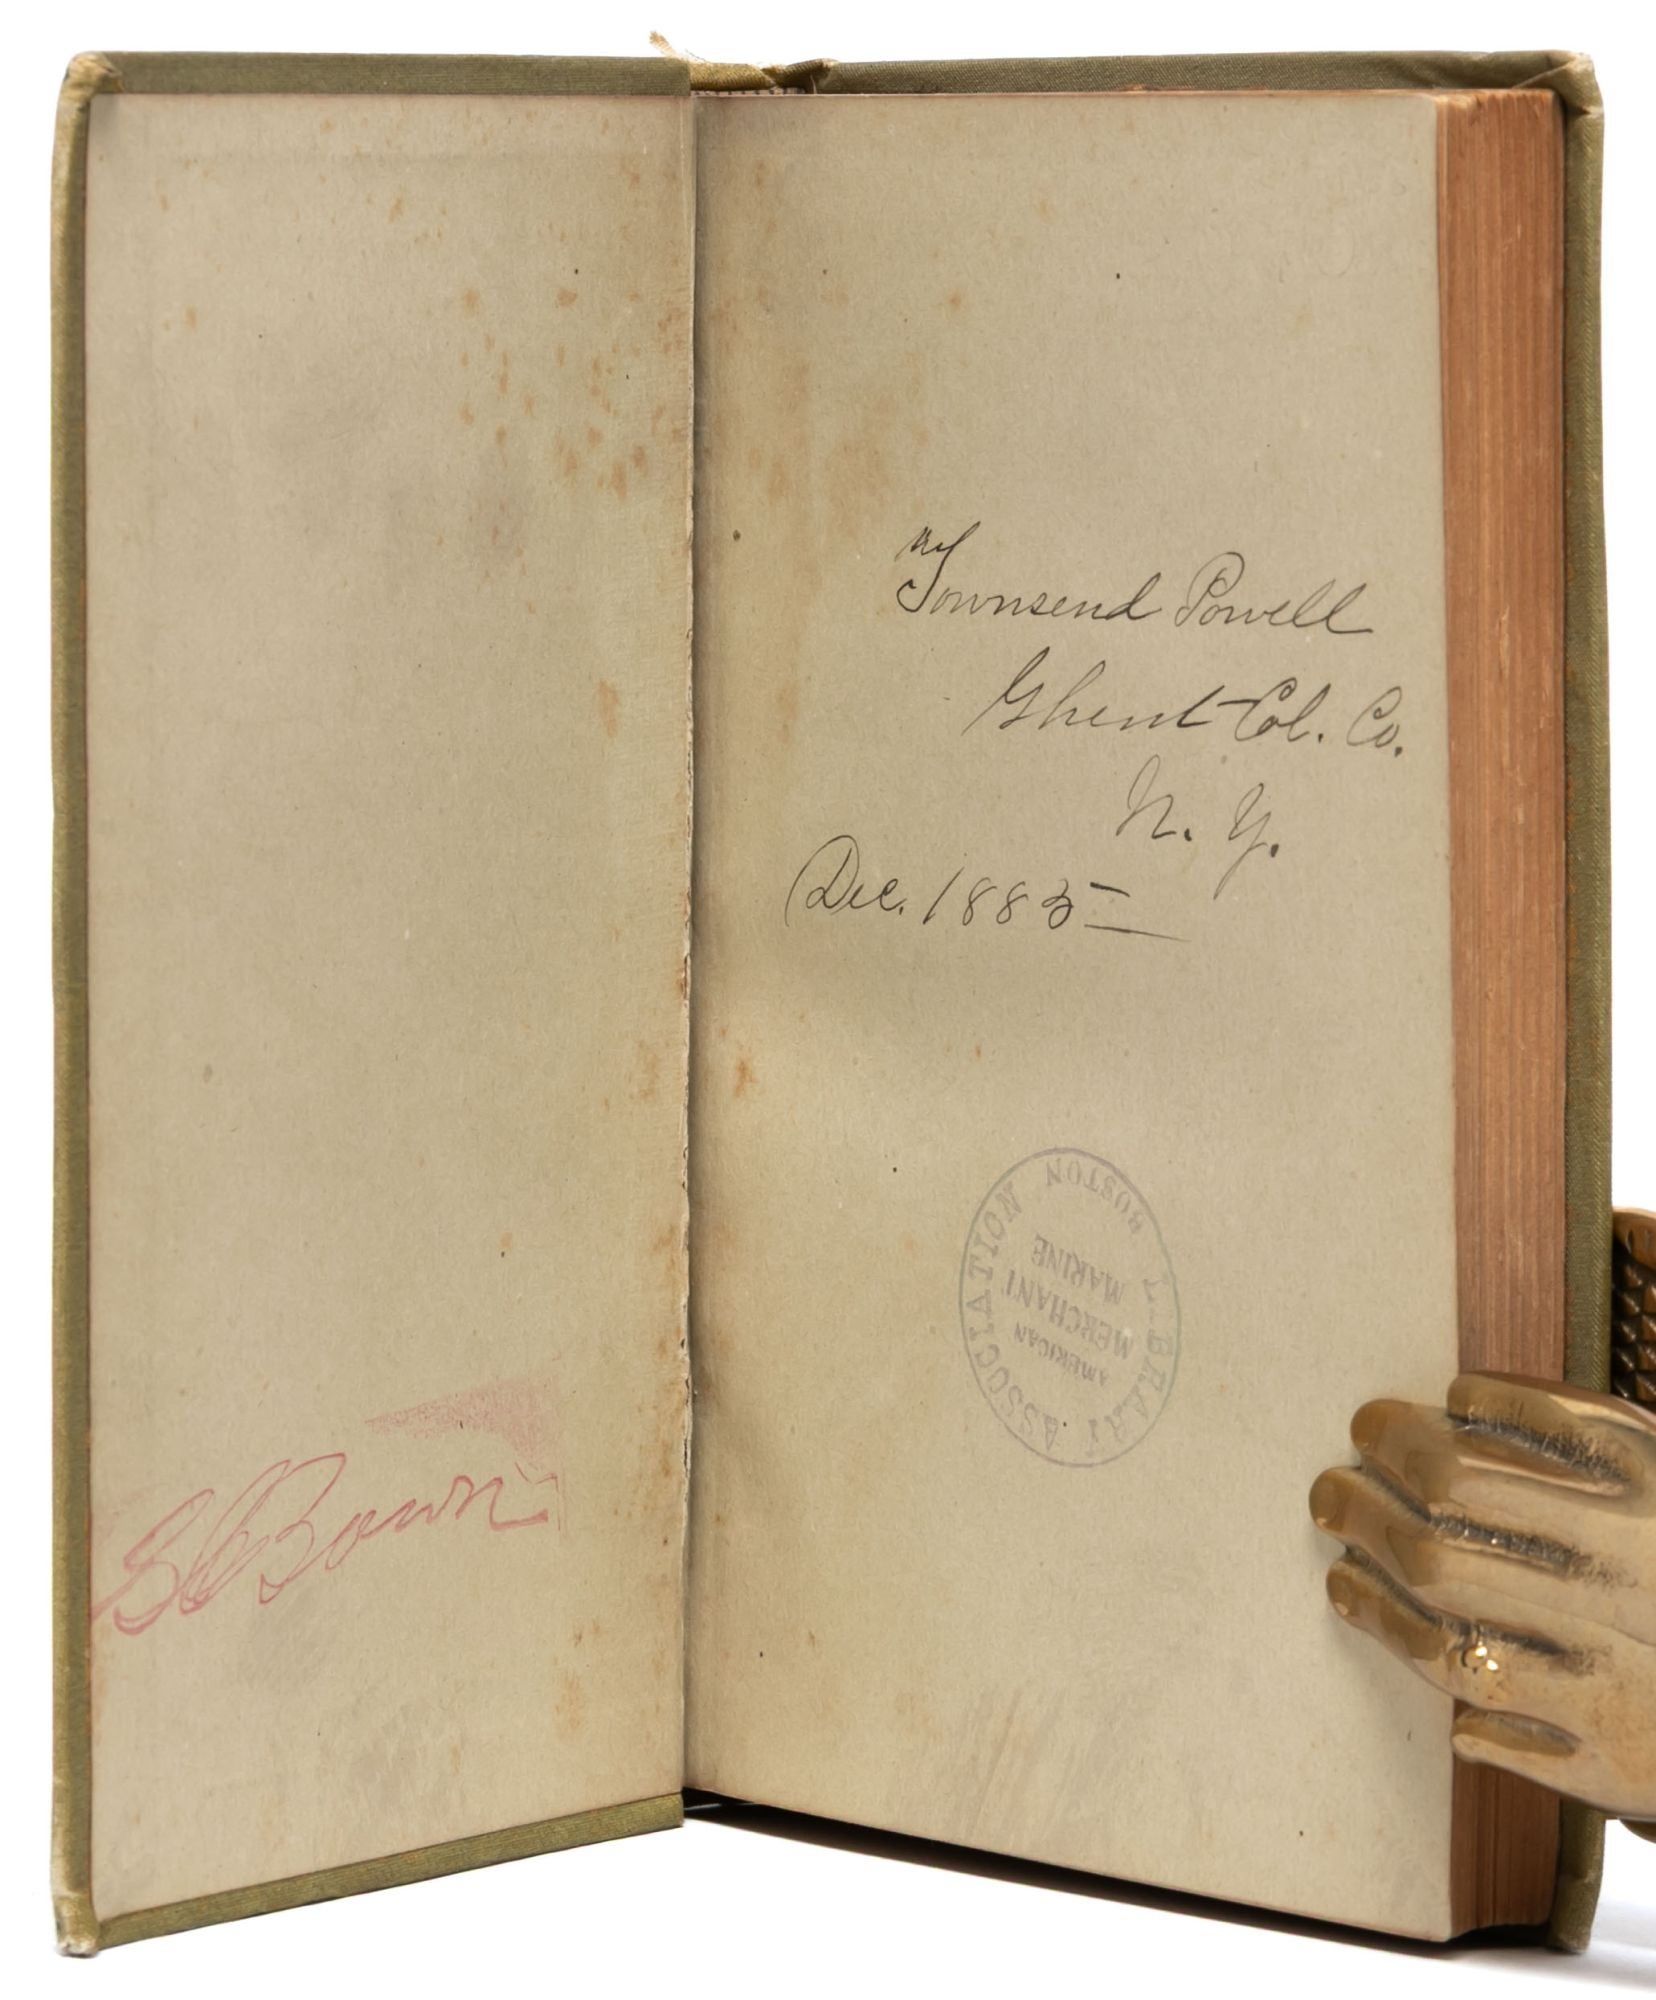 Townsend Powell
Ghent Col. Co.
N. Y.
Dec. 1885
LIBRARY ASSOCIATION
BOSTON
AMERICAN
MERCHANT
MARINE